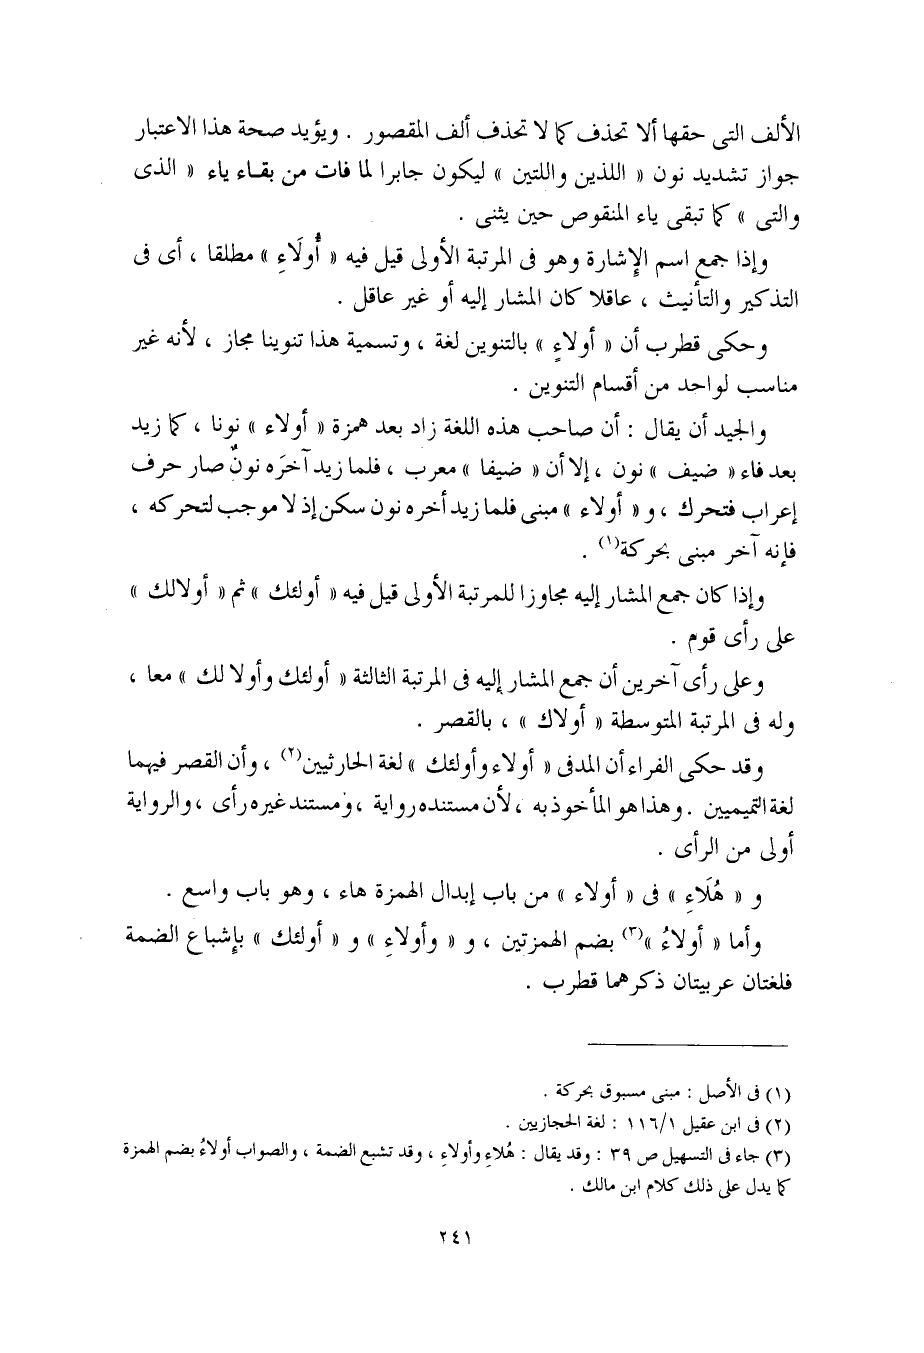 الألف التى حقها ألا تحذف كما لا تحذف ألف المقصور . ويؤيد صحة هذا الاعتبار
جواز تشديد نون « اللذين واللتين » ليكون جابرا لما فات من بقاء ياء « الذى
والتى » كما تبقى ياء المنقوص حين يثنى .
وإذا جمع اسم الإشارة وهو فى المرتبة الأولى قيل فيه « أُولَاءِ » مطلقا ، أى فى
التذكير والتأنيث ، عاقلا كان المشار إليه أو غير عاقل .
وحكى قطرب أن « أولاءٍ » بالتنوين لغة ، وتسمية هذا تنوينا مجاز ، لأنه غير
مناسب لواحد من أقسام التنوين .
والجيد أن يقال : أن صاحب هذه اللغة زاد بعد همزة « أولاء » نونا ، كما زيد
بعد فاء « ضيف » نون ، إلا أن « ضيفا » معرب ، فلما زيد آخرَه نونٌ صار حرف
إعراب فتحرك ، و « أولاء » مبنى فلما زيد أخره نون سكن إذ لا موجب لتحركه ،
فإنه آخر مبنى بحركة(١) .
وإذا كان جمع المشار إليه مجاوزا للمرتبة الأولى قيل فيه « أولئك » ثم « أولالك »
على رأى قوم .
وعلى رأى آخرين أن جمع المشار إليه فى المرتبة الثالثة « أولئك وأولا لك » معا ،
وله فى المرتبة المتوسطة « أولاك » ، بالقصر .
وقد حكى الفراء أن المدفى « أولاء وأولئك » لغة الحارثيين(٢) ، وأن القصر فيهما
لغة التميميين . وهذا هو المأخوذ به ، لأن مستنده رواية ، ومستند غيره رأى ، والرواية
أولى من الرأى .
و « هُلَاءِ » فى « أولاء » من باب إبدال الهمزة هاء ، وهو باب واسع .
وأما « أولاءُ »(٣) بضم الهمزتين ، و « وأولاءِ » و « أولئك » بإشباع الضمة
فلغتان عربيتان ذكرهما قطرب .
(١) فى الأصل : مبنى مسبوق بحركة .
(٢) فى ابن عقيل ١١٦/١ : لغة الحجازيين .
(٣) جاء فى التسهيل ص ٣٩ : وقد يقال : هُلاءِ وأولاءِ ، وقد تشبع الضمة ، والصواب أولاءُ بضم الهمزة
كما يدل على ذلك كلام ابن مالك .
٢٤١